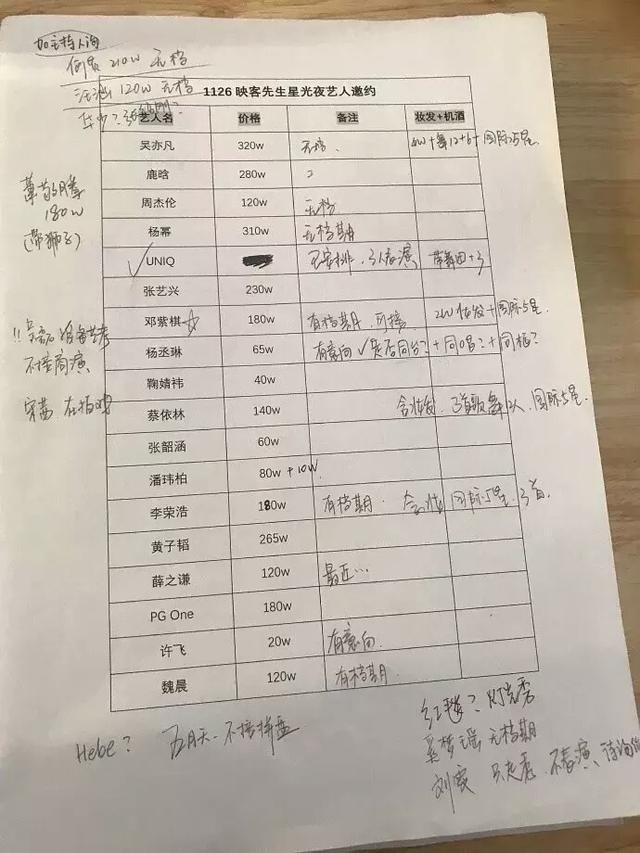 加主档人询
何炅 210W 无档
汪涵 120W 无档
华少?
1126 映客先生星光夜艺人邀约
艺人名 价格 备注 妆发+机酒
吴亦凡 320w 无档. 4w+舞12+6+国际5星.
鹿晗 280w
周杰伦 120w 无档
杨幂 310w 无档期
UNIQ 无安排. 3人表演 带舞团+3
张艺兴 230w
邓紫棋☆ 180w 有档期.可接 2W妆发+国际5星.
杨丞琳 65w 有意向√是否同台?+同唱?+同框?
鞠婧祎 40w
蔡依林 140w 含妆发. 3首歌舞 人.国际5星.
张韶涵 60w
潘玮柏 80w+10W
李荣浩 180w 有档期. 含妆 国际5星.3首
黄子韬 265w
薛之谦 120w 最近…
PG One 180w
许飞 20w 有意向
魏晨 120w 有档期
180W
(带狮子)
!! 吴磊 准备艺考
不接商演
宋茜 在拍戏
Hebe? 五月天-不接拼盘
红毯?灯光秀
奚梦瑶 无档期
刘雯 只走秀.不表演.待询价